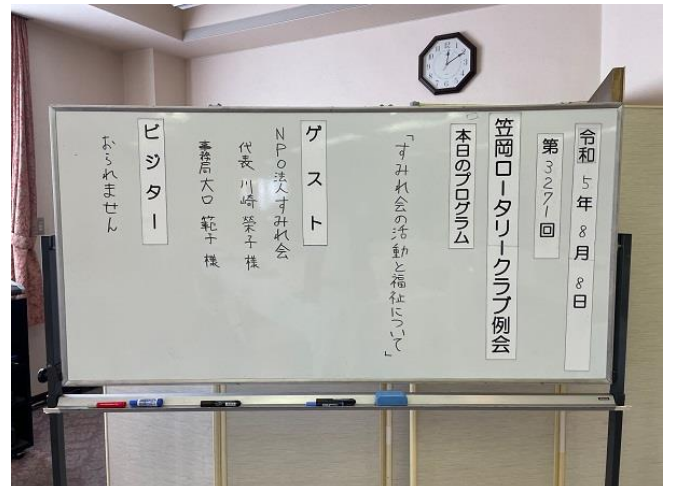 令和 5年 8月 8日
第3271回
笠岡ロータリークラブ例会
本日のプログラム
「すみれ会の活動と福祉について」
ゲスト
NPO法人すみれ会
代表 川崎 榮子 様
事務局 大口 範子 様
ビジター
おられません